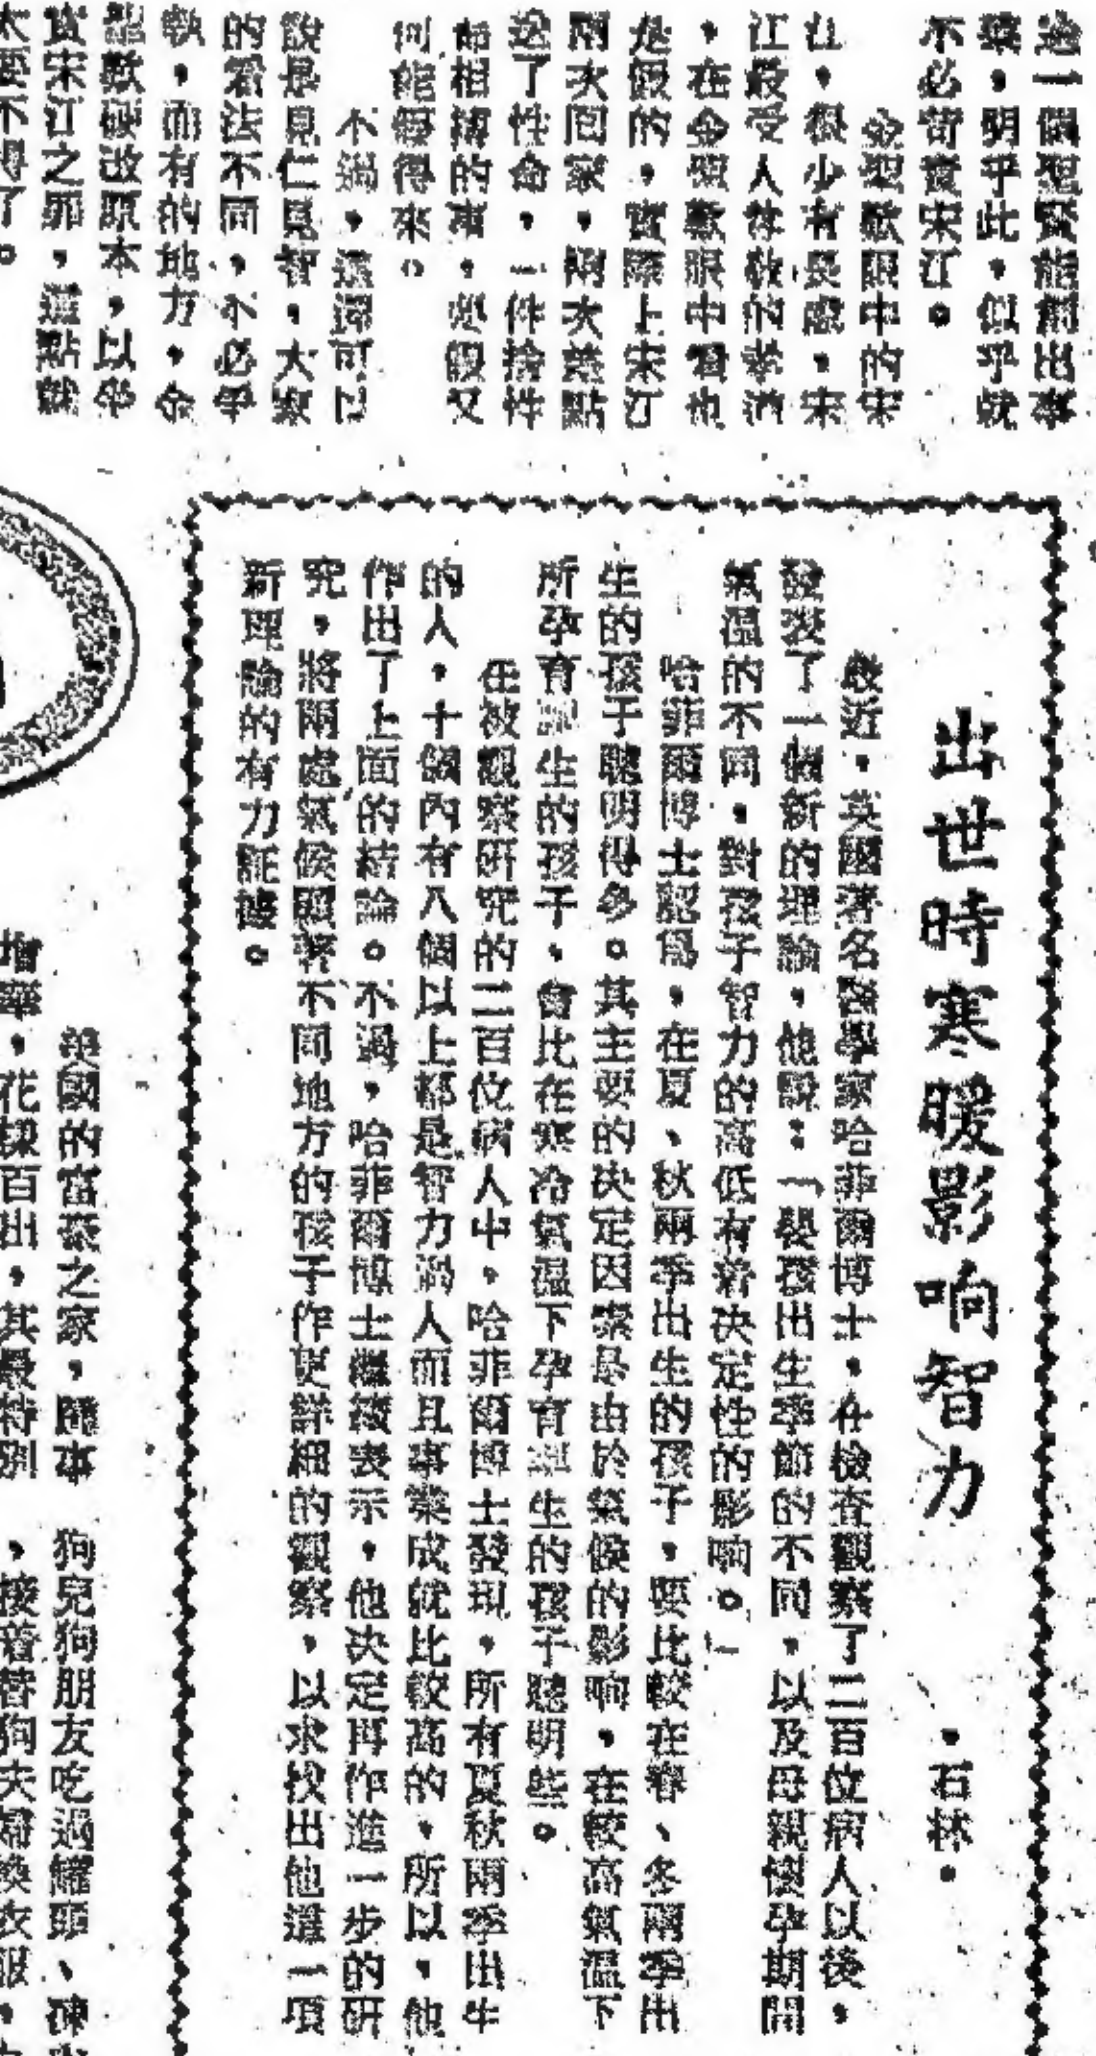 不必苛責宋江。
金聖歎眼中的宋
江，很少有長處，宋
江最受人尊敬的孝道
，在金聖歎眼中看也
是假的，實際上宋江
兩次回家，兩次差點
送了性命，一件捨性
命相搏的事，
何能得來。
不過，這還可以
說是見仁見智，大家
的看法不同，不必爭
執，而有的地方，金
聖歎硬改原本，以牽
實宋江之罪，這點就
太要不得了。
出世時寒暖影响智力
•石林•
最近，英國著名醫學家哈菲爾博士，在檢查觀察了二百位病人以後，
發表了一個新的理論，他說：「嬰孩出生季節的不同，以及母親懷孕期間
氣溫的不同，對孩子智力的高低有着決定性的影响。」
哈菲爾博士認爲，在夏、秋兩季出生的孩子，要比較在春、冬兩季出
生的孩子聰明得多。其主要的決定因素是由於氣候的影响，在較高氣溫下
所孕育誕生的孩子，會比在寒冷氣溫下孕育誕生的孩子聰明些。
在被觀察研究的二百位病人中，哈菲爾博士發現，所有夏秋兩季出生
的人，十個內有八個以上都是智力過人而且事業成就比較高的，所以，他
作出了上面的結論。不過，哈菲爾博士繼續表示，他決定再作進一步的研
究，將兩處氣候顯著不同地方的孩子作更詳細的觀察，以求找出他這一項
新理論的有力証據。
美國的富豪之家，鬧事
增華，花樣百出，其最特別
狗兒狗朋友吃過罐頭、凍
，接着替狗夫婦換衣服，